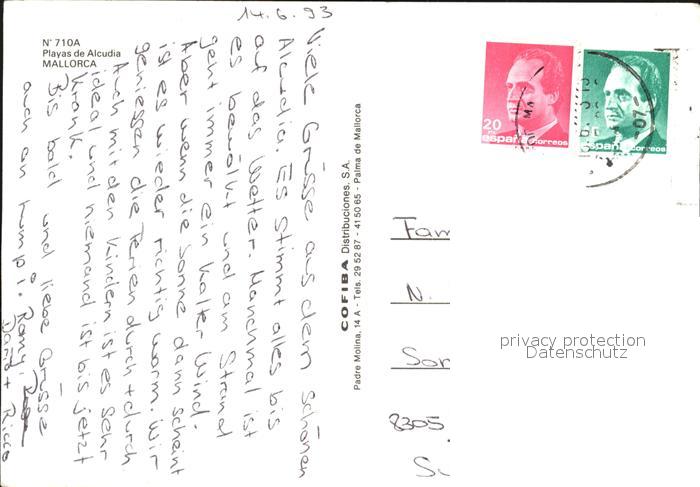 14.6.93
N° 710A
Playas de Alcudia
MALLORCA
Viele Grüsse aus dem schönen
Alcudia. Es stimmt alles bis
auf das Wetter. Manchmal ist
es bewölkt und am Strand
geht immer ein kalter Wind.
Aber wenn die Sonne dann scheint
ist es wieder richtig warm. Wir
geniessen die Ferien durch + durch
Auch mit den Kindern ist es sehr
ideal und niemand ist bis jetzt
krank.
Bis bald und liebe Grüsse
auch an
Romy,
+ Ricco
COFIBA Distribuciones, S.A.
Padre Molina, 14 A - Tels. 29 52 87 - 41 50 65 - Palma de Mallorca
20
españa correos
españa correos
07-
Fam
N.
8305
privacy protection
Datenschutz